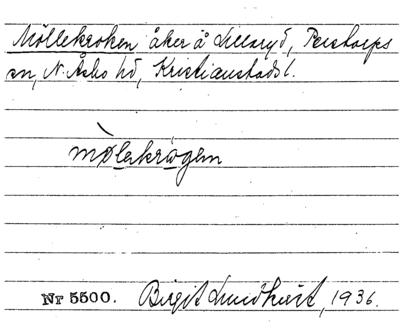 Möllekroken åker å Lillaryd, Perstorps
sn, N. Åsbo hd, Kristianstads l.
mølekrågen
Nr 5500. Birgit Lundkvist, 1936.